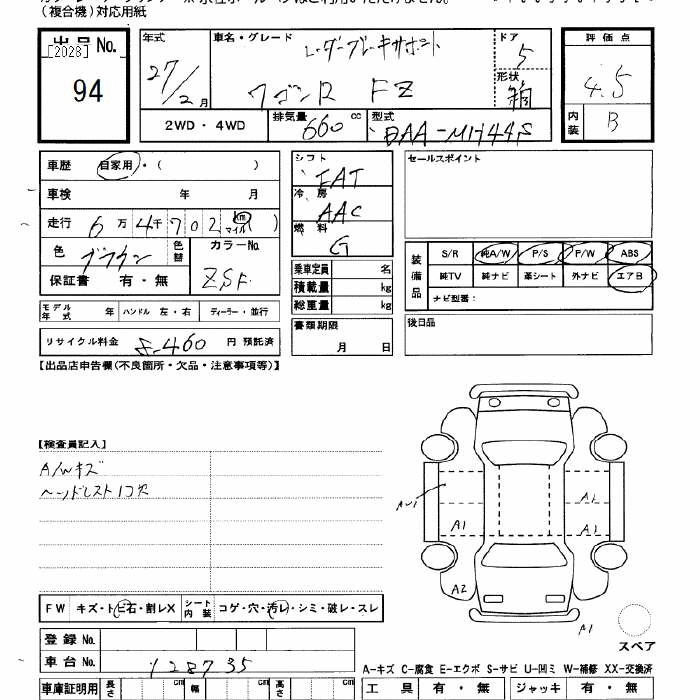 (複合機)対応用紙
出品No.
[2028]
94
年式
27/2月
車名・グレード
レーダーブレーキサポート
ワゴンR FZ
ドア
5
形状
箱
評価点
4.5
内装
B
2WD・4WD
排気量
660 cc
型式
DAA-MH44S
車歴 自家用・( )
車検 年 月
走行 6万4千702 km マイル( )
色 ブラウン
色替
カラーNo.
ZSF
保証書 有・無
シフト
FAT
冷房
AAC
燃料
G
セールスポイント
装備品
S/R 純A/W P/S P/W ABS
純TV 純ナビ 革シート 外ナビ エアB
ナビ型番:
乗車定員 名
積載量 kg
総重量 kg
モデル年式 年 ハンドル 左・右 ディーラー・並行
書類期限
月 日
後日品
リサイクル料金 円 預託済
【出品店申告欄(不良箇所・欠品・注意事項等)】
【検査員記入】
A/Wキズ
ヘッドレスト1コ欠
AU1
A1
A1
A1
A2
A1
スペア
FW キズ・トビ石・割レX
シート内装 コゲ・穴・汚レ・シミ・破レ・スレ
登録No.
車台No. 128735
A-キズ C-腐食 E-エクボ S-サビ U-凹ミ W-補修 XX-交換済
車庫証明用 長さ cm 幅 cm 高さ cm
工具 有・無 ジャッキ 有・無